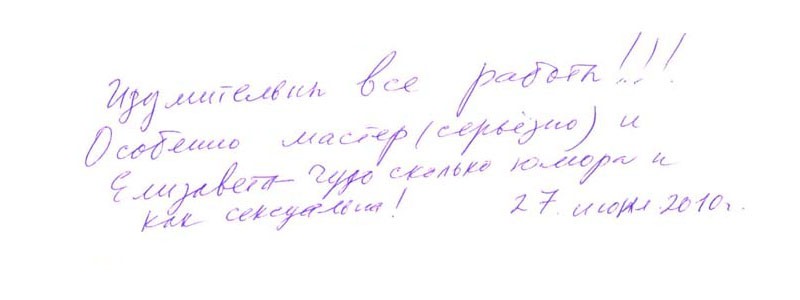 Изумительны все работы!!!
Особенно мастер (серьёзно) и
Елизавета Чудо сколько юмора и
как сексуальна! 27 2010г.